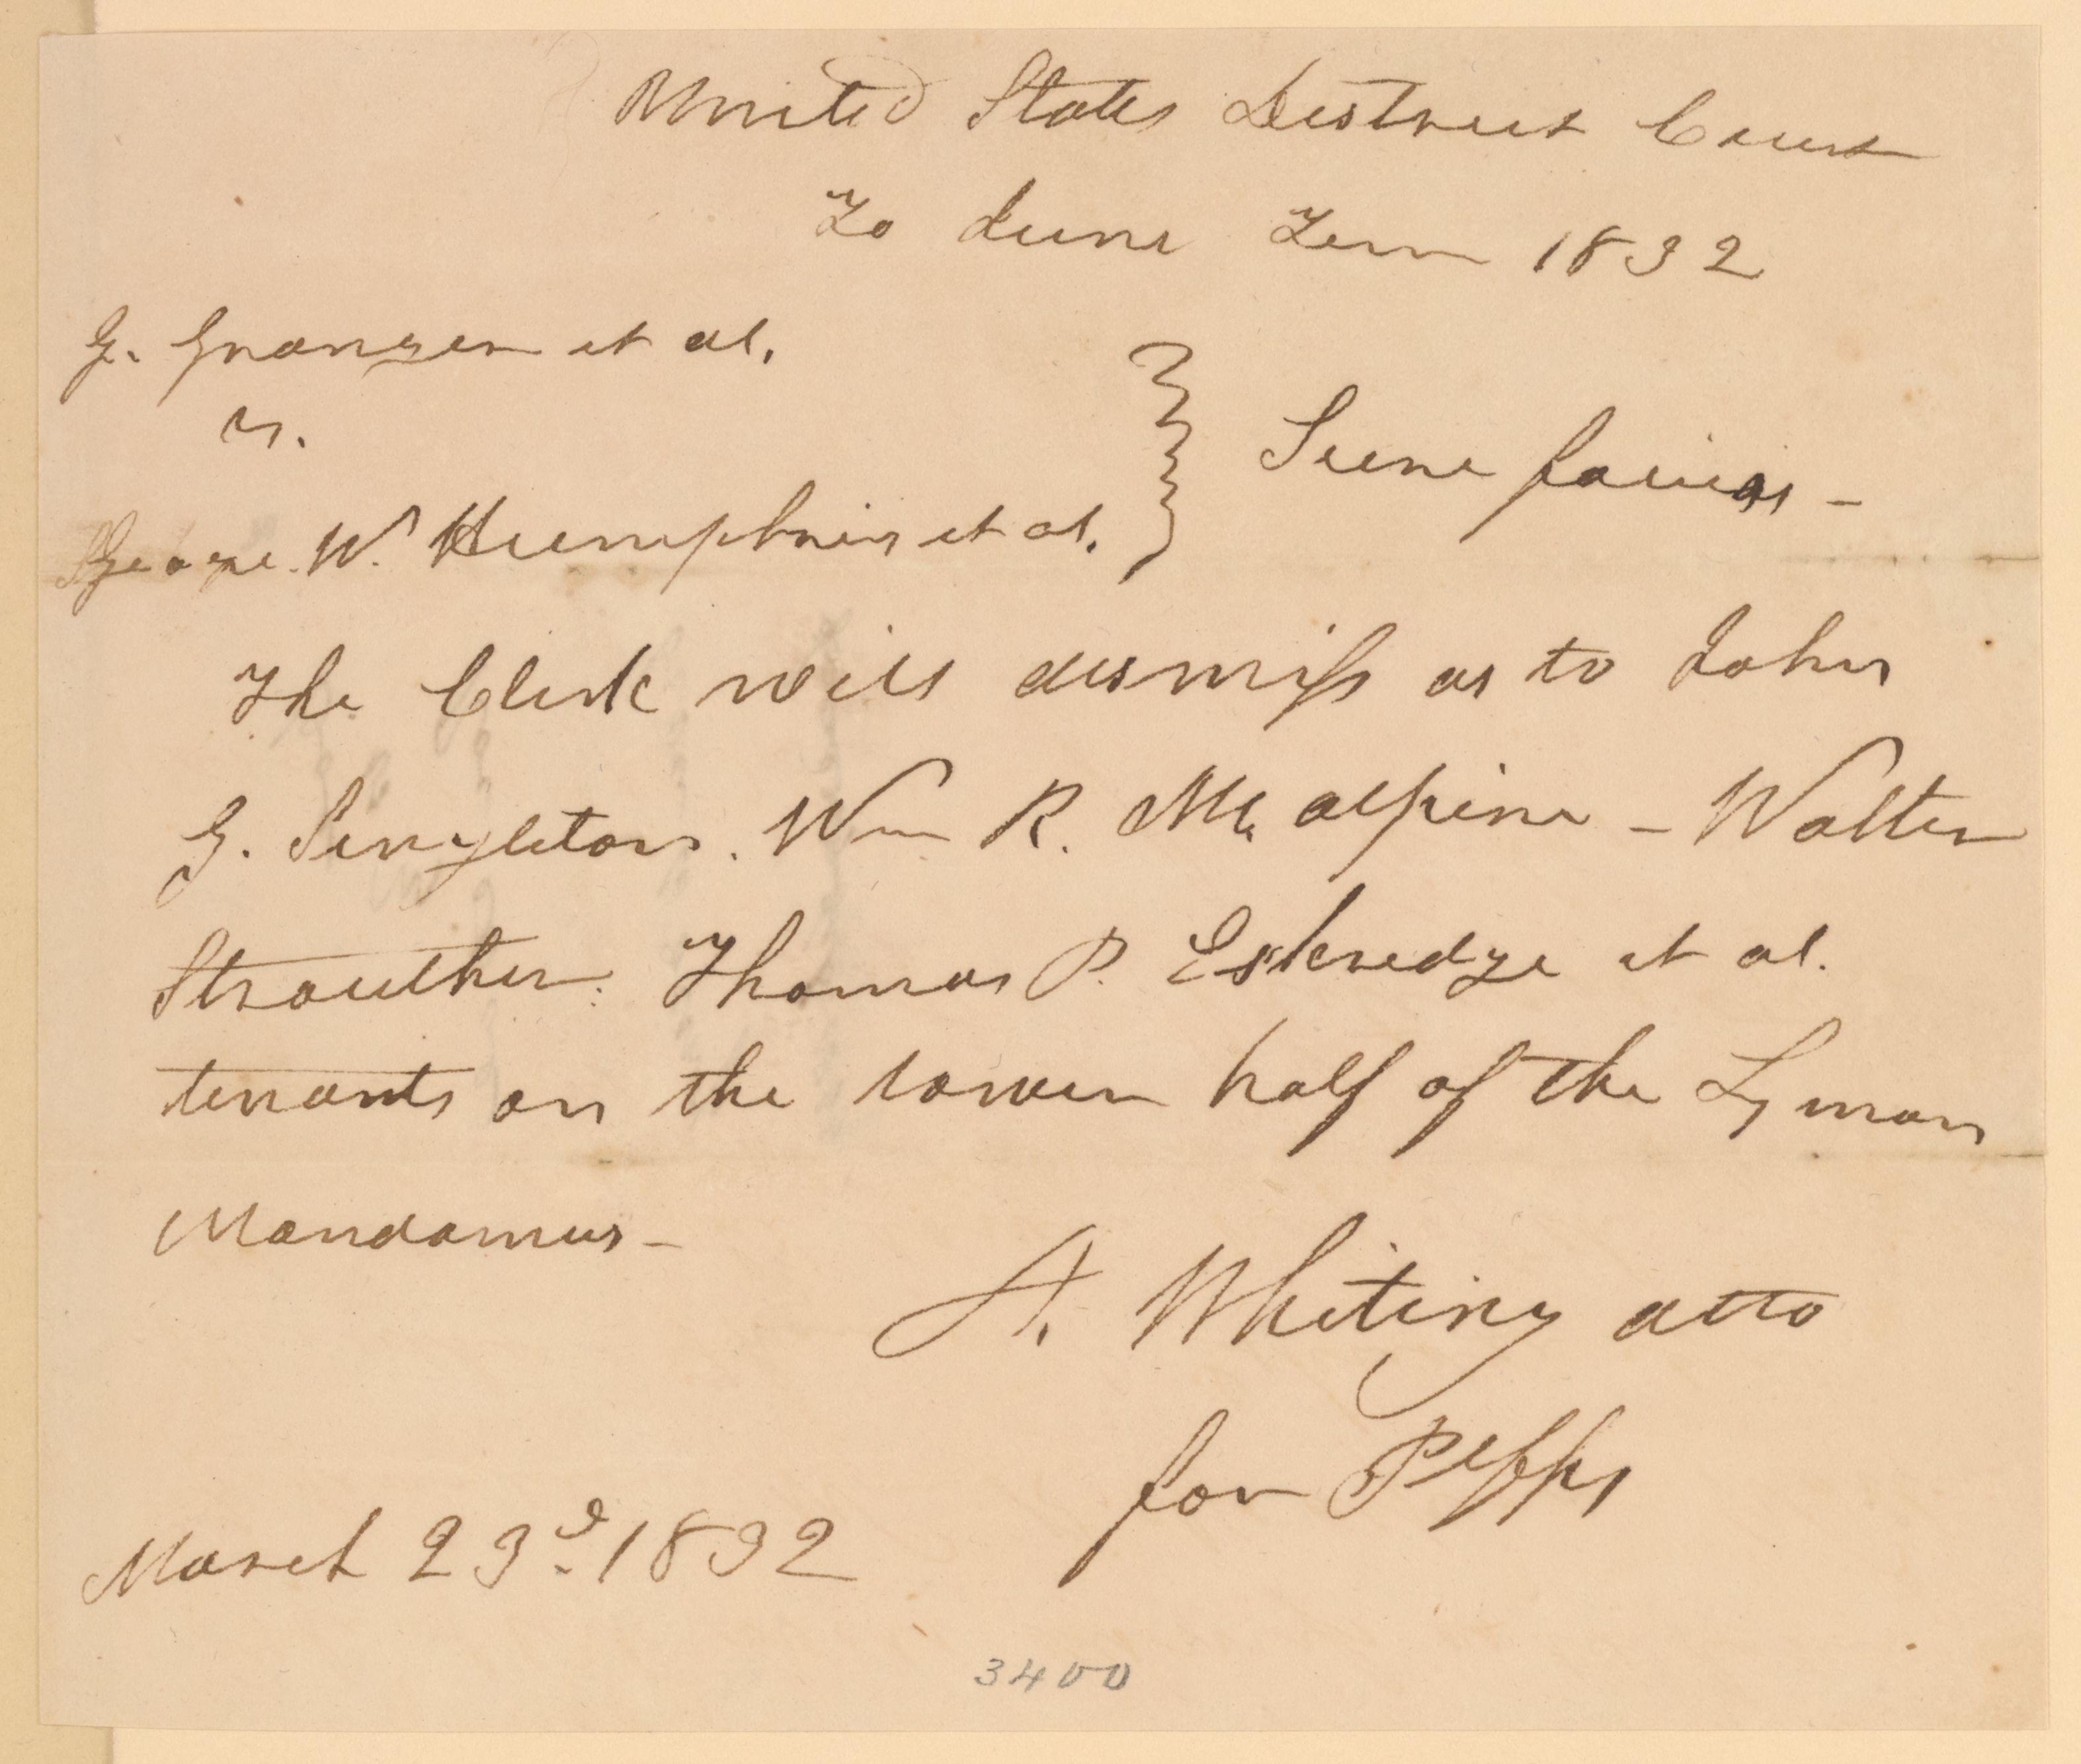 United States District Court
To June Term 1832
G. Granger et al.
vs.
George. W. Humphries et al.
Scire facias -
The Clerk will dismiss as to John
G. Singleton. Wm R. Mc. alpine - Walter
Strauther. Thomas P. Eskredge et al.
tenants on the lower half of the Lyman
Mandamus -
A. Whiting atto
for Plffs
March 23d. 1832
3400